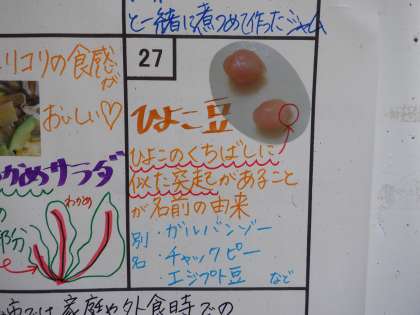 と一緒に煮つめて作ったジャム
リコリの食感が
おいしい♡
かめサラダ
わかめ
の
部分
27
ひよこ豆
ひよこのくちばしに
似た突起があること
が名前の由来
別名
・ガルバンゾー
・チャックピー
・エジプト豆 など
では家庭や外食時での